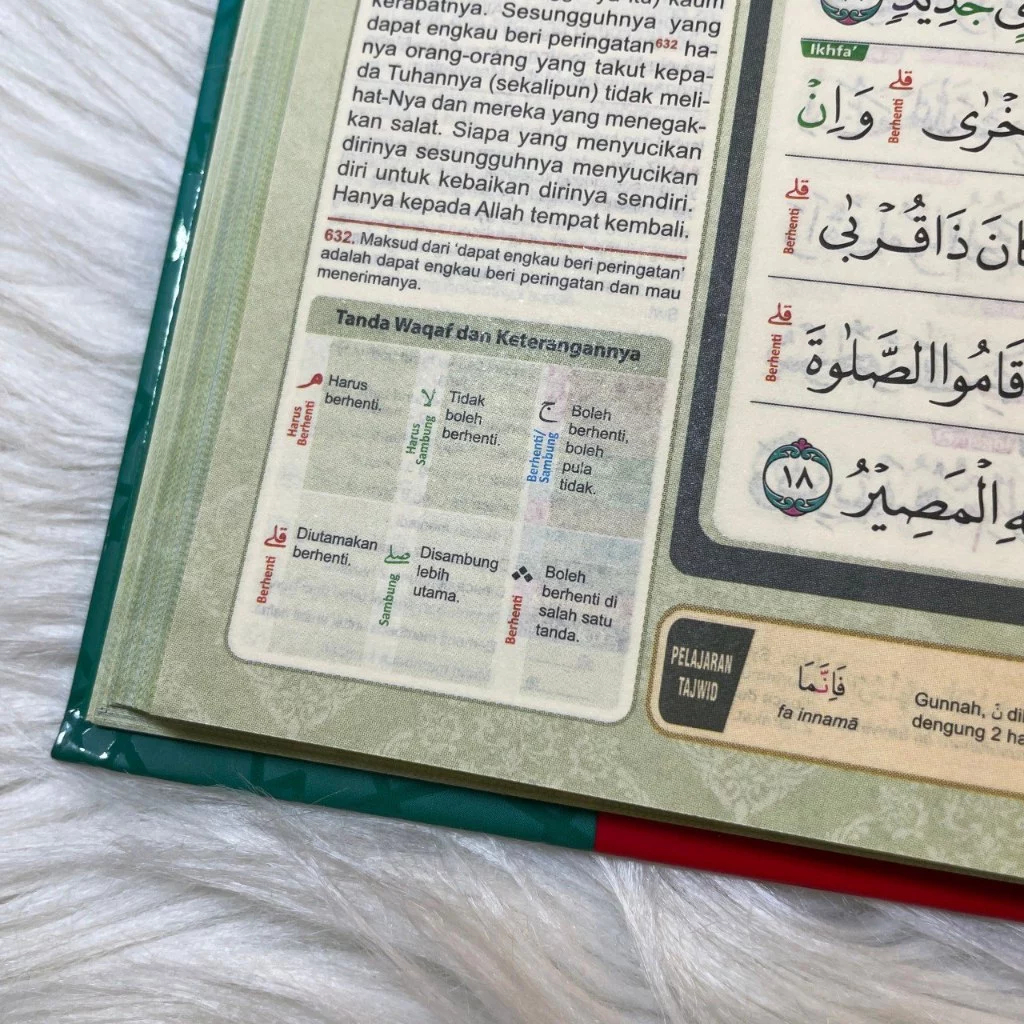 kerabatnya. Sesungguhnya yang
dapat engkau beri peringatan632 ha-
nya orang-orang yang takut kepa-
da Tuhannya (sekalipun) tidak meli-
hat-Nya dan mereka yang menegak-
kan salat. Siapa yang menyucikan
dirinya sesungguhnya menyucikan
diri untuk kebaikan dirinya sendiri.
Hanya kepada Allah tempat kembali.
632. Maksud dari ‘dapat engkau beri peringatan’
adalah dapat engkau beri peringatan dan mau
menerimanya.
Tanda Waqaf dan Keterangannya
مـ
Harus
Berhenti
Harus
berhenti.
لا
Harus
Sambung
Tidak
boleh
berhenti.
ج
Berhenti/
Sambung
Boleh
berhenti,
boleh
pula
tidak.
قلى
Berhenti
Diutamakan
berhenti.
صلى
Sambung
Disambung
lebih
utama.
Berhenti
Boleh
berhenti di
salah satu
tanda.
جَدِيْدٍ
Ikhfa’
قلى
Berhenti
وَاِنْ
قلى
Berhenti
ذَا قُرْبٰى
قلى
Berhenti
الصَّلٰوةَ
الْمَصِيْرُ ١٨
PELAJARAN
TAJWID
فَاِنَّمَا
fa innamā
Gunnah, نّ
dengung 2